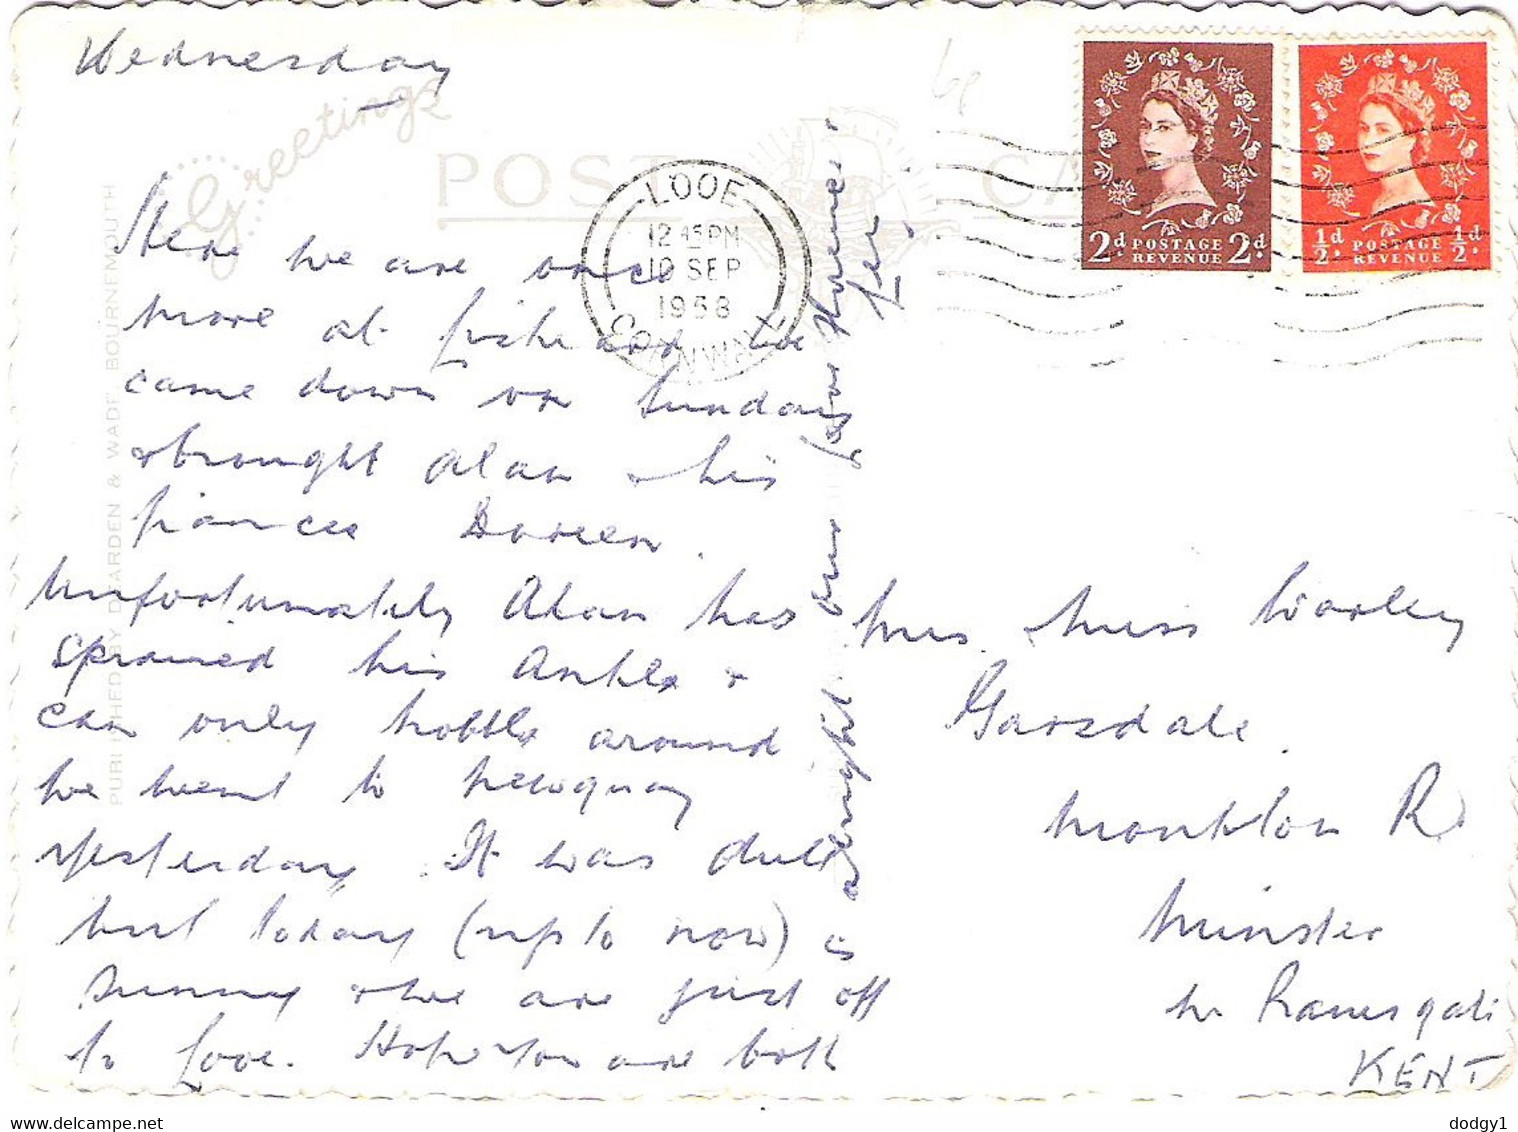 Wednesday
Greetings
POST CARD
LOOE
12 45 PM
10 SEP
1958
CORNWALL
2d POSTAGE REVENUE 2d.
½d POSTAGE REVENUE ½d.
PUBLISHED BY DEARDEN & WADE BOURNEMOUTH
Here we are once
more at
We
came down on Sunday
& brought Alan & his
fiancee Doreen.
Unfortunately Alan has
sprained his Ankle &
can only hobble around
We went to Newquay
yesterday. It was dull
but today (up to now) is
sunny & we are just off
to Looe. Hope you are both
alright
love Florence
Mrs. Miss Warley
Garsdale.
Monkton Rd
Minster
Nr Ramsgate
KENT
dodgy1